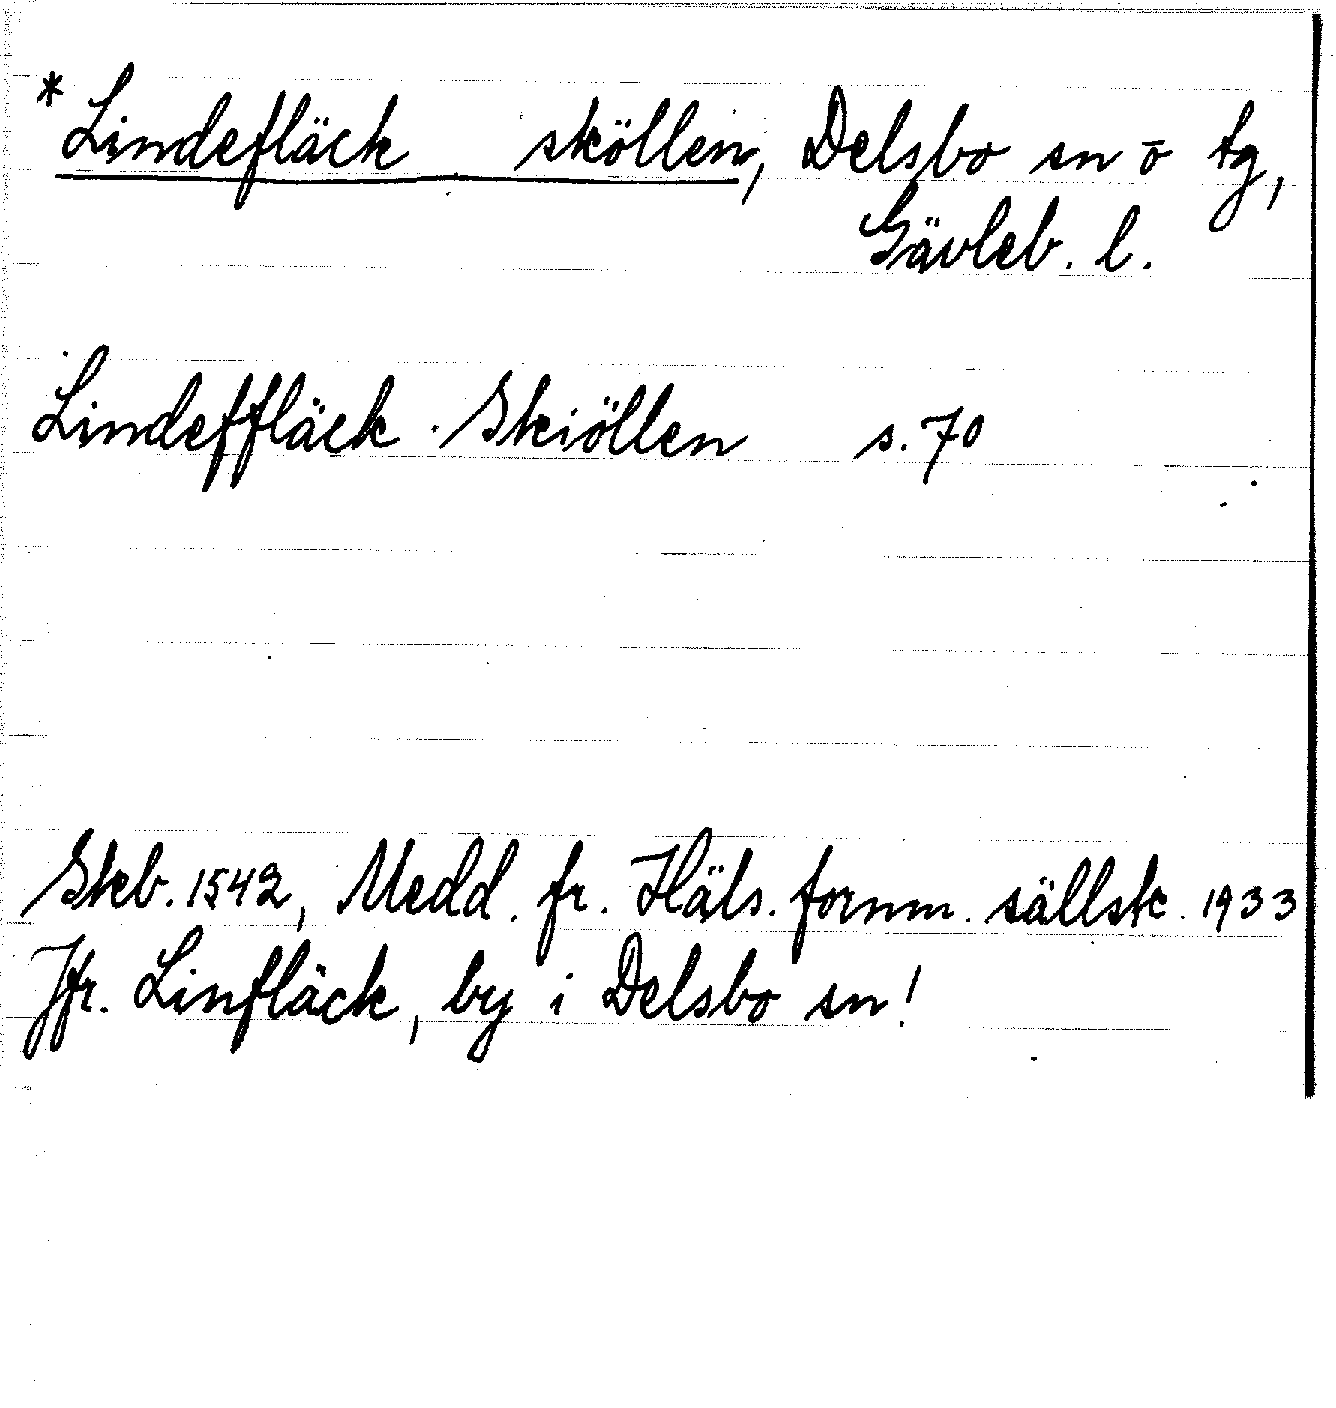 * Lindefläck sköllen, Delsbo sn o tg,
Gävleb. l.
Lindeffläck Skiöllen s. 70
Skb. 1542, Medd. fr. Häls. fornm. sällsk. 1933
Jfr. Linfläck, by i Delsbo sn!